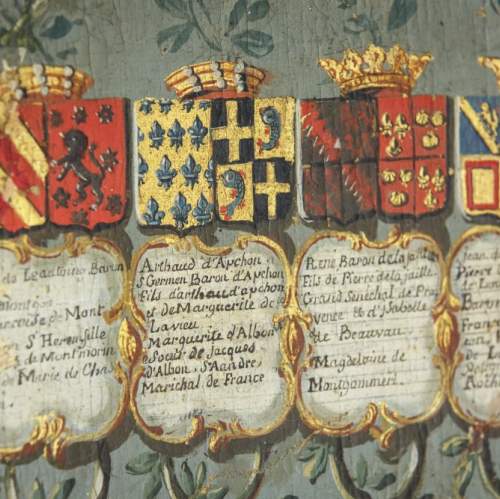 de Leautoing Baron
de Mont
St Herem fille
de Montmorin
de Marie de Cha
Arthaud d'Apchon
St Germen Baron d'Apchon
Fils d'arthaud d'apchon
et de Marguerite de
Lavieu
Marguerite d'Albon
Soeur de Jacques
d'Albon St Aandre
Marichal de France
Rene Baron de la jaille
Fils de Pierre de la jaille
Grand Senéchal de Pro
vence & d'Isabelle
de Beauvau
Magdeloine de
Montgommeri
Jean
Pierre
de
Baron